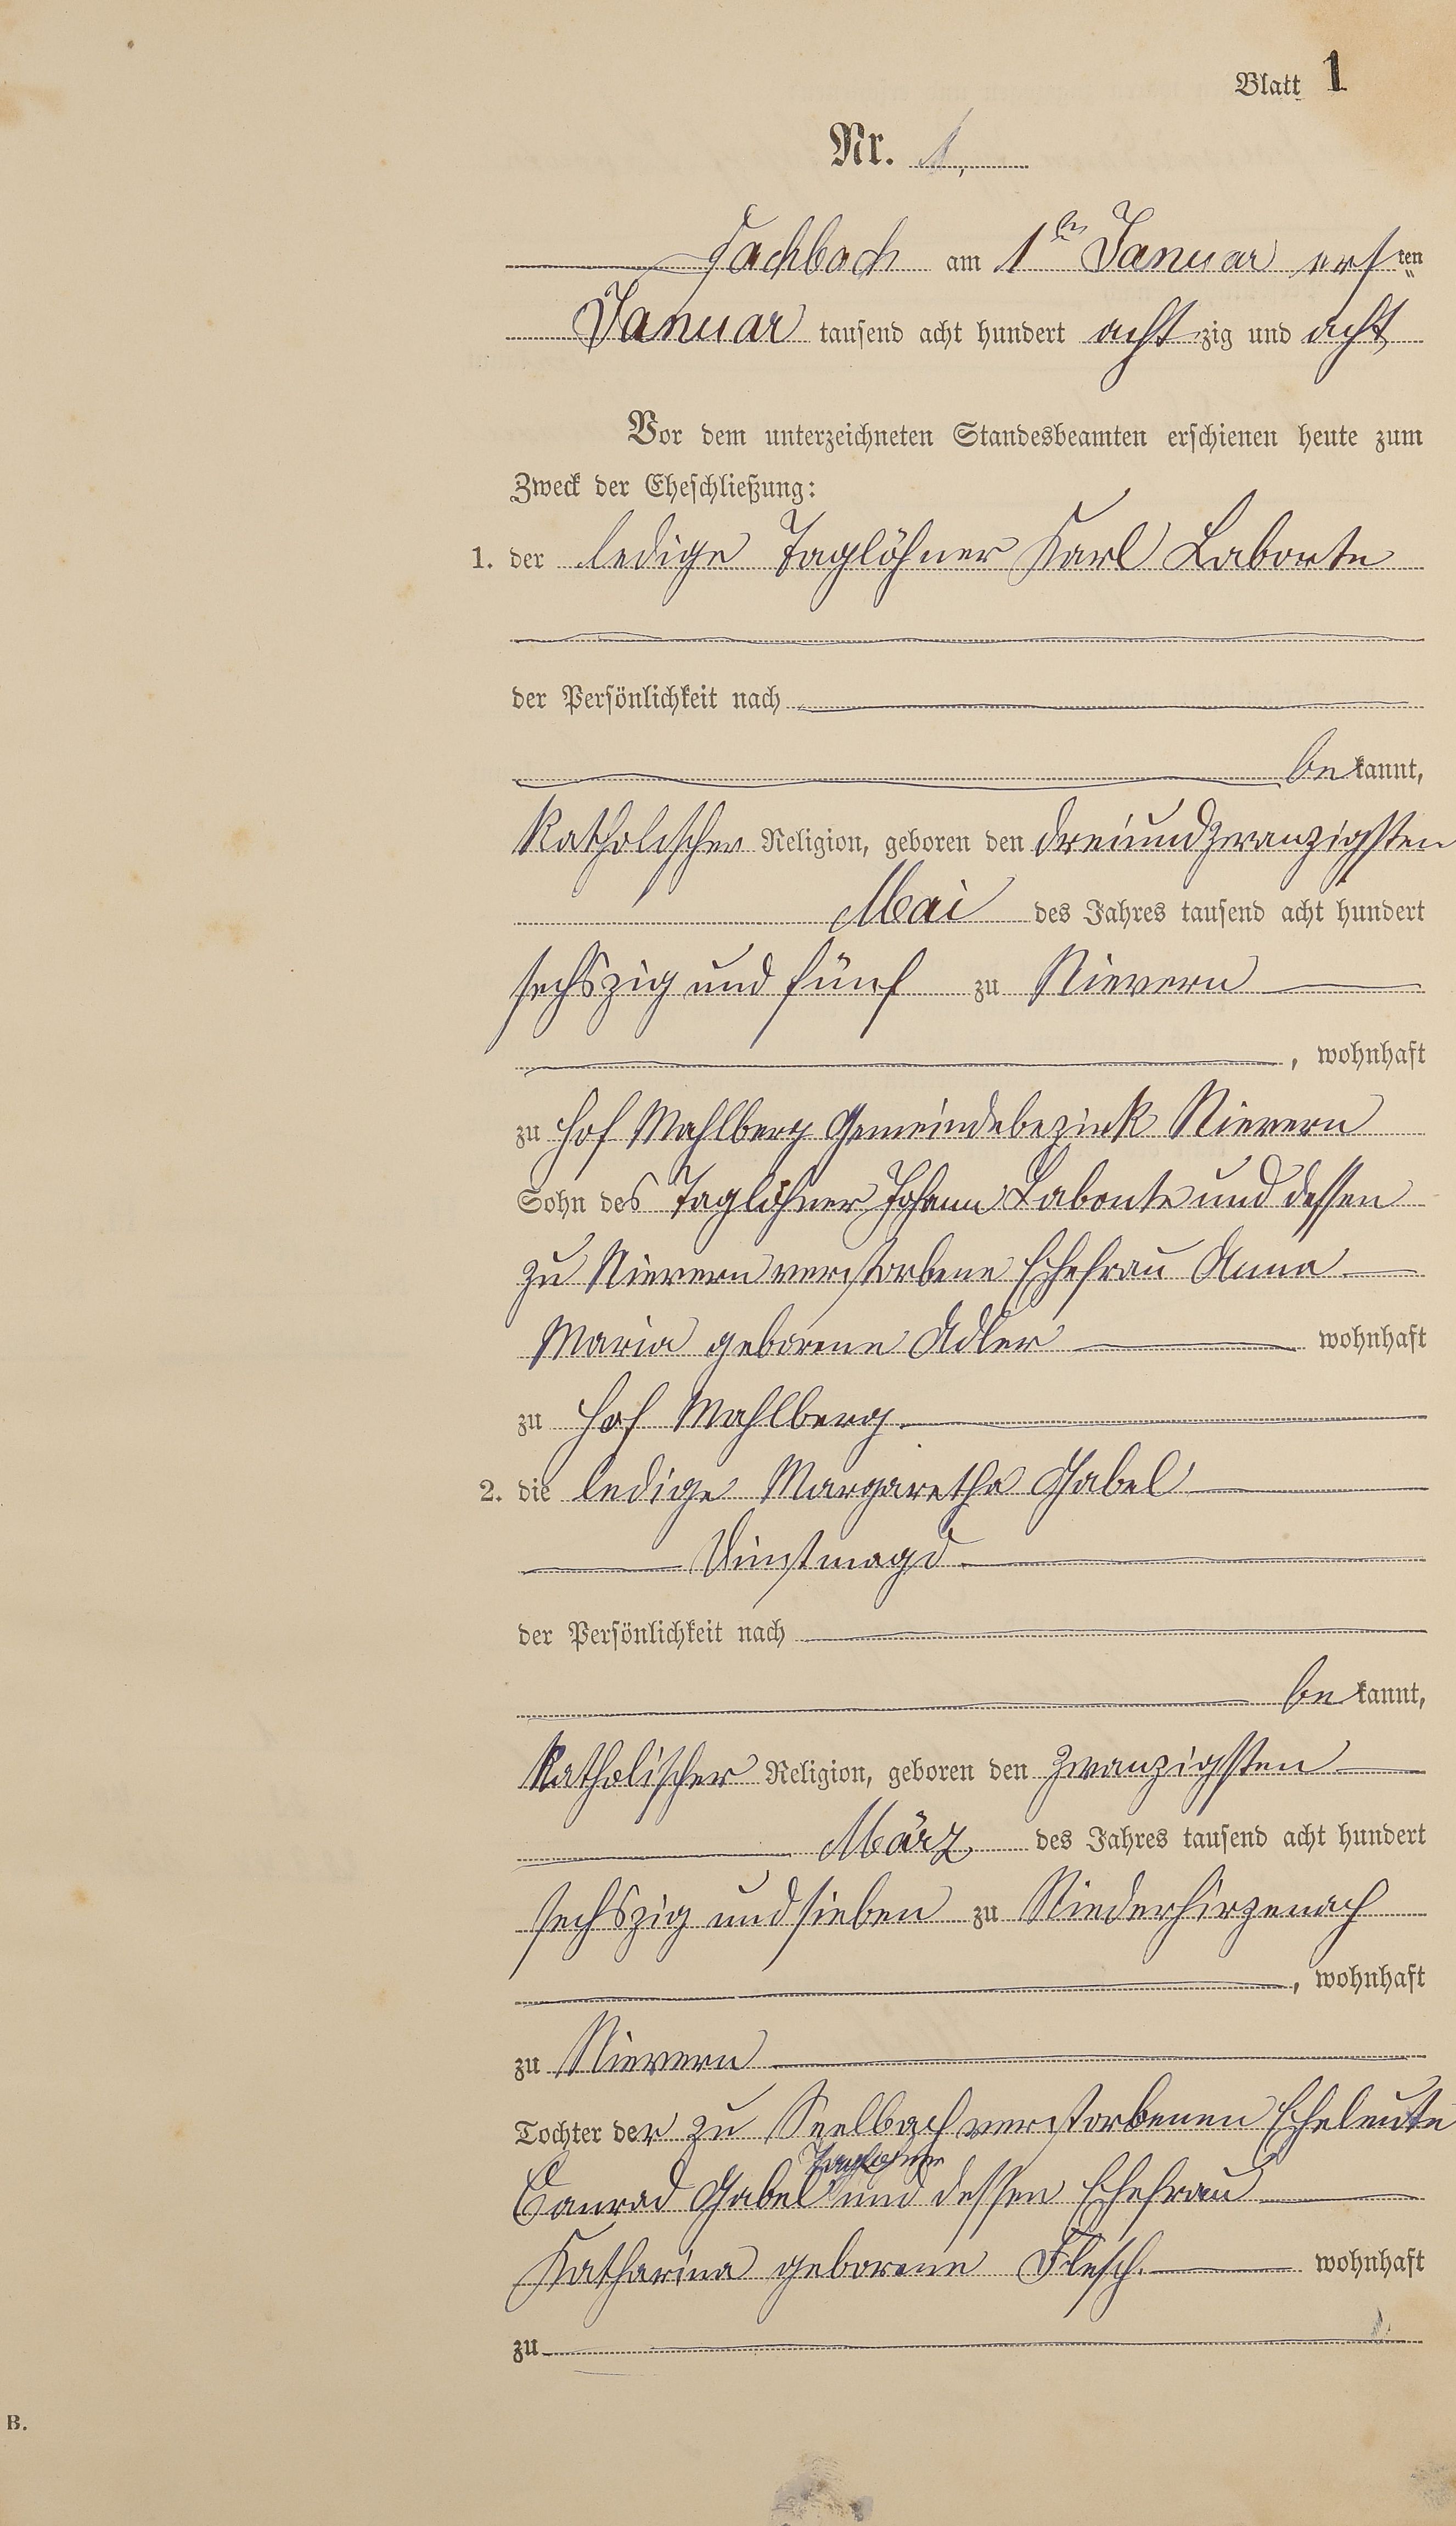 Blatt 1
Nr. 1,
Fachbach am 1ten Januar ersten
Januar tausend acht hundert achtzig und acht
Vor dem unterzeichneten Standesbeamten erschienen heute zum
Zweck der Eheschließung:
1. der ledige Taglöhner Karl Labonte
der Persönlichkeit nach
bekannt,
Katholischer Religion, geboren den dreiundzwanzigsten
Mai des Jahres tausend acht hundert
sechszig und fünf zu Nievern
, wohnhaft
zu Hof Mahlberg Gemeindebezirk Nievern
Sohn des Taglöhner Johann Labonte und dessen
zu Nievern verstorbene Ehefrau Anna
Maria geborene Adler wohnhaft
zu Hof Mahlberg.
2. die ledige Margaretha Gabel
Dienstmagd
der Persönlichkeit nach
bekannt,
Katholischer Religion, geboren den zwanzigsten
März des Jahres tausend acht hundert
sechszig und sieben zu Niederhirzenach
, wohnhaft
zu Nievern
Tochter der zu Seelbach verstorbenen Eheleute
Taglöhner
Conrad Gabel und dessen Ehefrau
Katharina geborene Flesch. wohnhaft
zu
B.